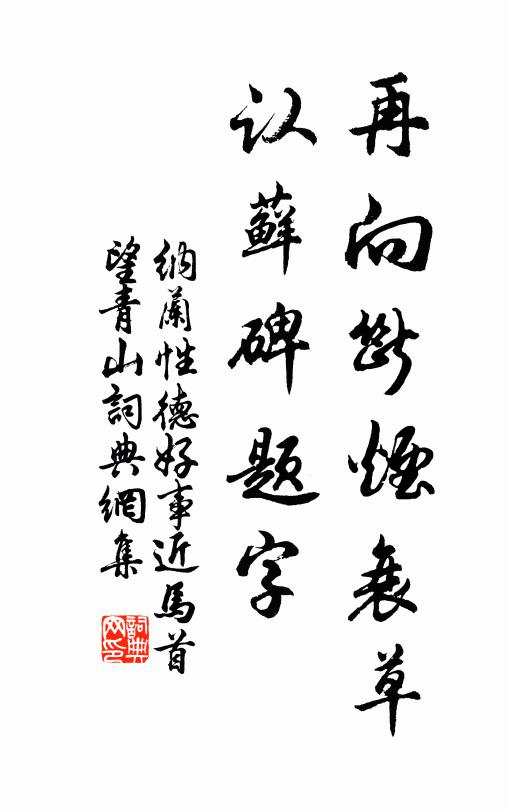 再向断煙衰草
认蘚碑题字
納蘭性德好事近馬首
望青山詞典網集
詞典
网印